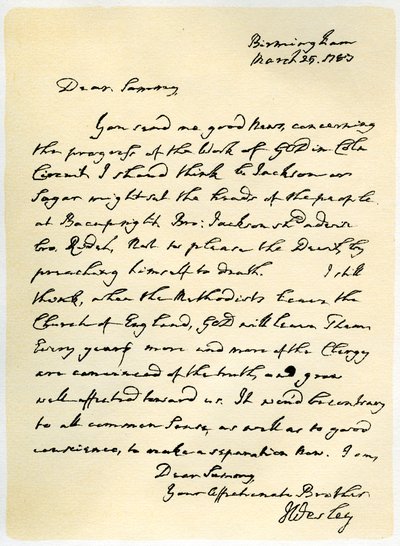 Birmingham
March 25. 1787
Dear Sammy,
You send me good News, concerning
the progress of the Work of GOD in Coln
Circuit. I should think Br Jackson or
Sugar might set the heads of the people
at Bacup right. Bro: Jackson shd advise
bro. Ridel, Not to please the Devil, by
preaching himself to death. I still
think, when the Methodists leave the
Church of England, GOD will leave Them.
Every year more and more of the Clergy
are convinced of the truth, and grow
well-affected toward us. It wou'd be contrary
to all common Sense, as well as to good
conscience, to make a separation now. I am,
Dear Sammy,
Your Affectionate Brother
JWesley